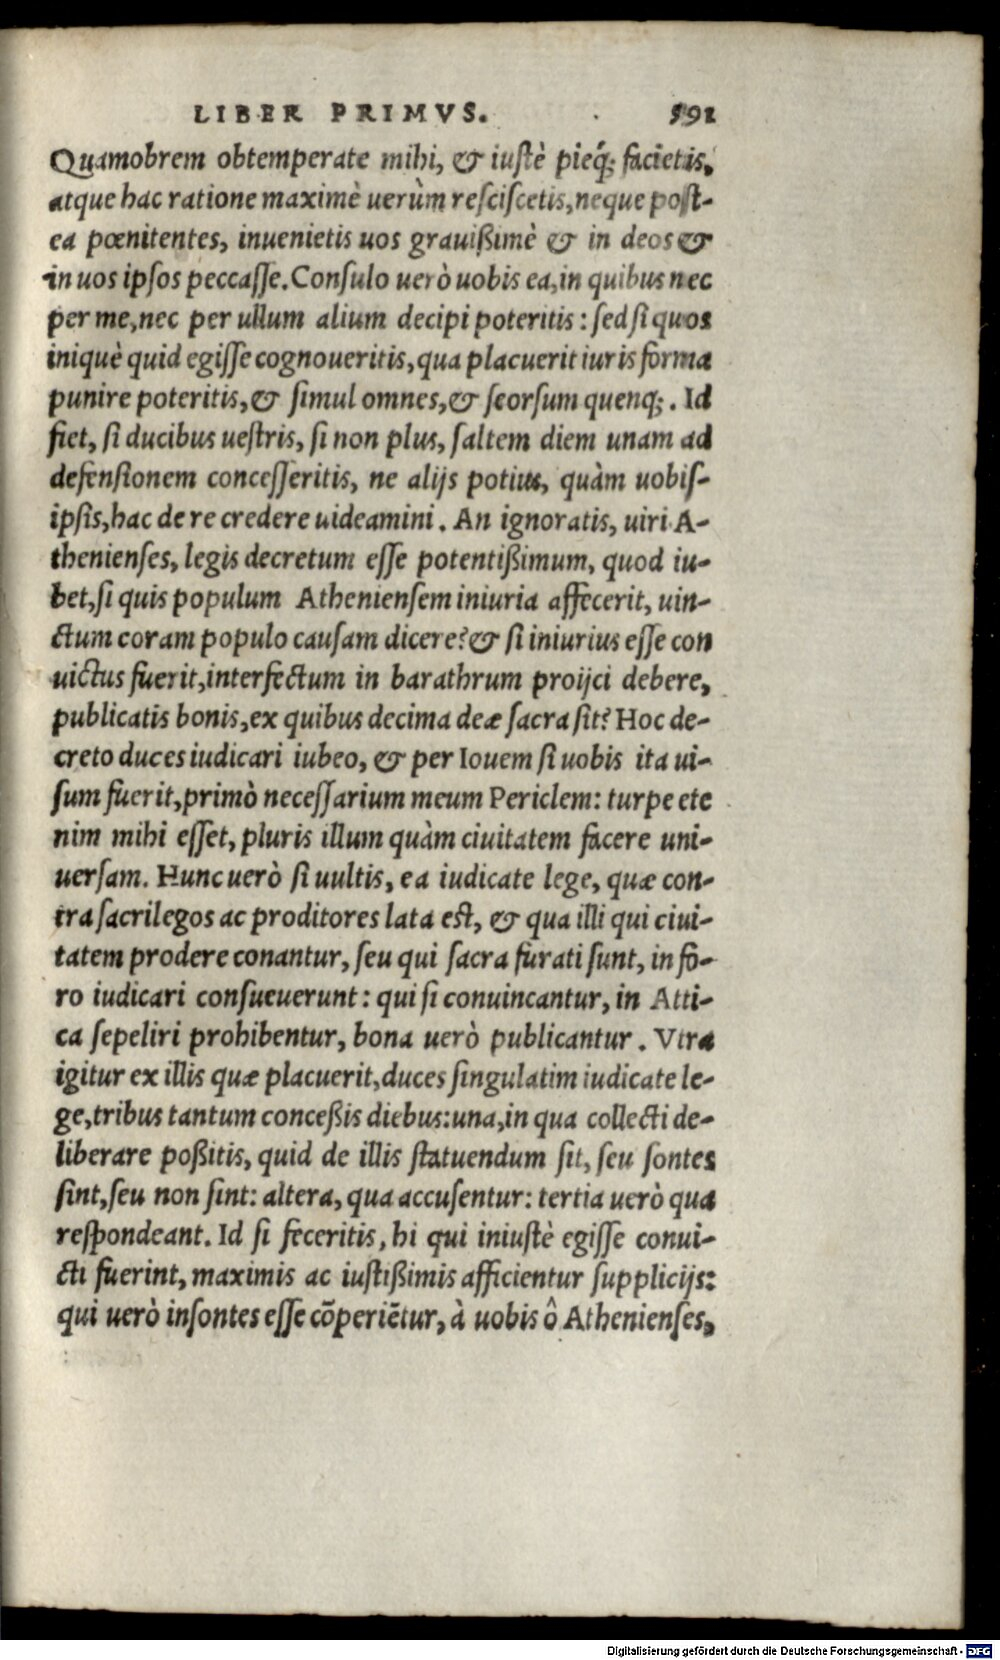 LIBER PRIMVS. 591
Quamobrem obtemperate mihi, & iustè pieq́; facietis,
atque hac ratione maximè uerùm resciscetis, neque post-
ea pœnitentes, inuenietis uos grauißimè & in deos &
in uos ipsos peccasse. Consulo uerò uobis ea, in quibus nec
per me, nec per ullum alium decipi poteritis: sed si quos
iniquè quid egisse cognoueritis, qua placuerit iuris forma
punire poteritis, & simul omnes, & seorsum quenq;. Id
fiet, si ducibus uestris, si non plus, saltem diem unam ad
defensionem concesseritis, ne alijs potius, quàm uobis-
ipsis, hac de re credere uideamini. An ignoratis, uiri A-
thenienses, legis decretum esse potentißimum, quod iu-
bet, si quis populum Atheniensem iniuria affecerit, uin-
ctum coram populo causam dicere? & si iniurius esse con
uictus fuerit, interfectum in barathrum proijci debere,
publicatis bonis, ex quibus decima deæ sacra sit? Hoc de-
creto duces iudicari iubeo, & per Iouem si uobis ita ui-
sum fuerit, primò necessarium meum Periclem: turpe ete
nim mihi esset, pluris illum quàm ciuitatem facere uni-
uersam. Hunc uerò si uultis, ea iudicate lege, quæ con-
tra sacrilegos ac proditores lata est, & qua illi qui ciui-
tatem prodere conantur, seu qui sacra furati sunt, in fo-
ro iudicari consueuerunt: qui si conuincantur, in Atti-
ca sepeliri prohibentur, bona uerò publicantur. Vtra
igitur ex illis quæ placuerit, duces singulatim iudicate le-
ge, tribus tantum conceßis diebus: una, in qua collecti de-
liberare poßitis, quid de illis statuendum sit, seu sontes
sint, seu non sint: altera, qua accusentur: tertia uerò qua
respondeant. Id si feceritis, hi qui iniustè egisse conui-
cti fuerint, maximis ac iustißimis afficientur supplicijs:
qui uerò insontes esse cõperiẽtur, à uobis ô Athenienses,
Digitalisierung gefördert durch die Deutsche Forschungsgemeinschaft - DFG